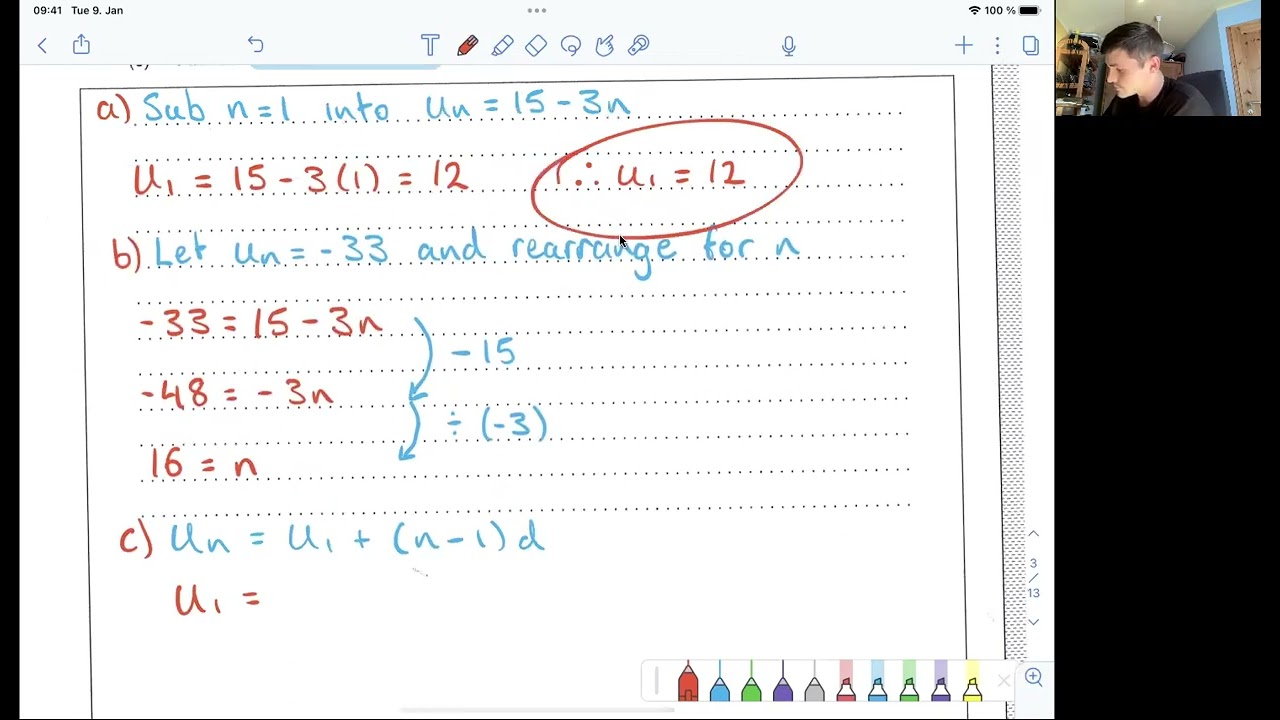 09:41 Tue 9. Jan
100 %
a) Sub n = 1 into Un = 15 - 3n
U1 = 15 - 3(1) = 12 ∴ U1 = 12
b) Let Un = -33 and rearrange for n
-33 = 15 - 3n
-15
-48 = -3n
÷ (-3)
16 = n
c) Un = U1 + (n-1)d
U1 =
3
/
13